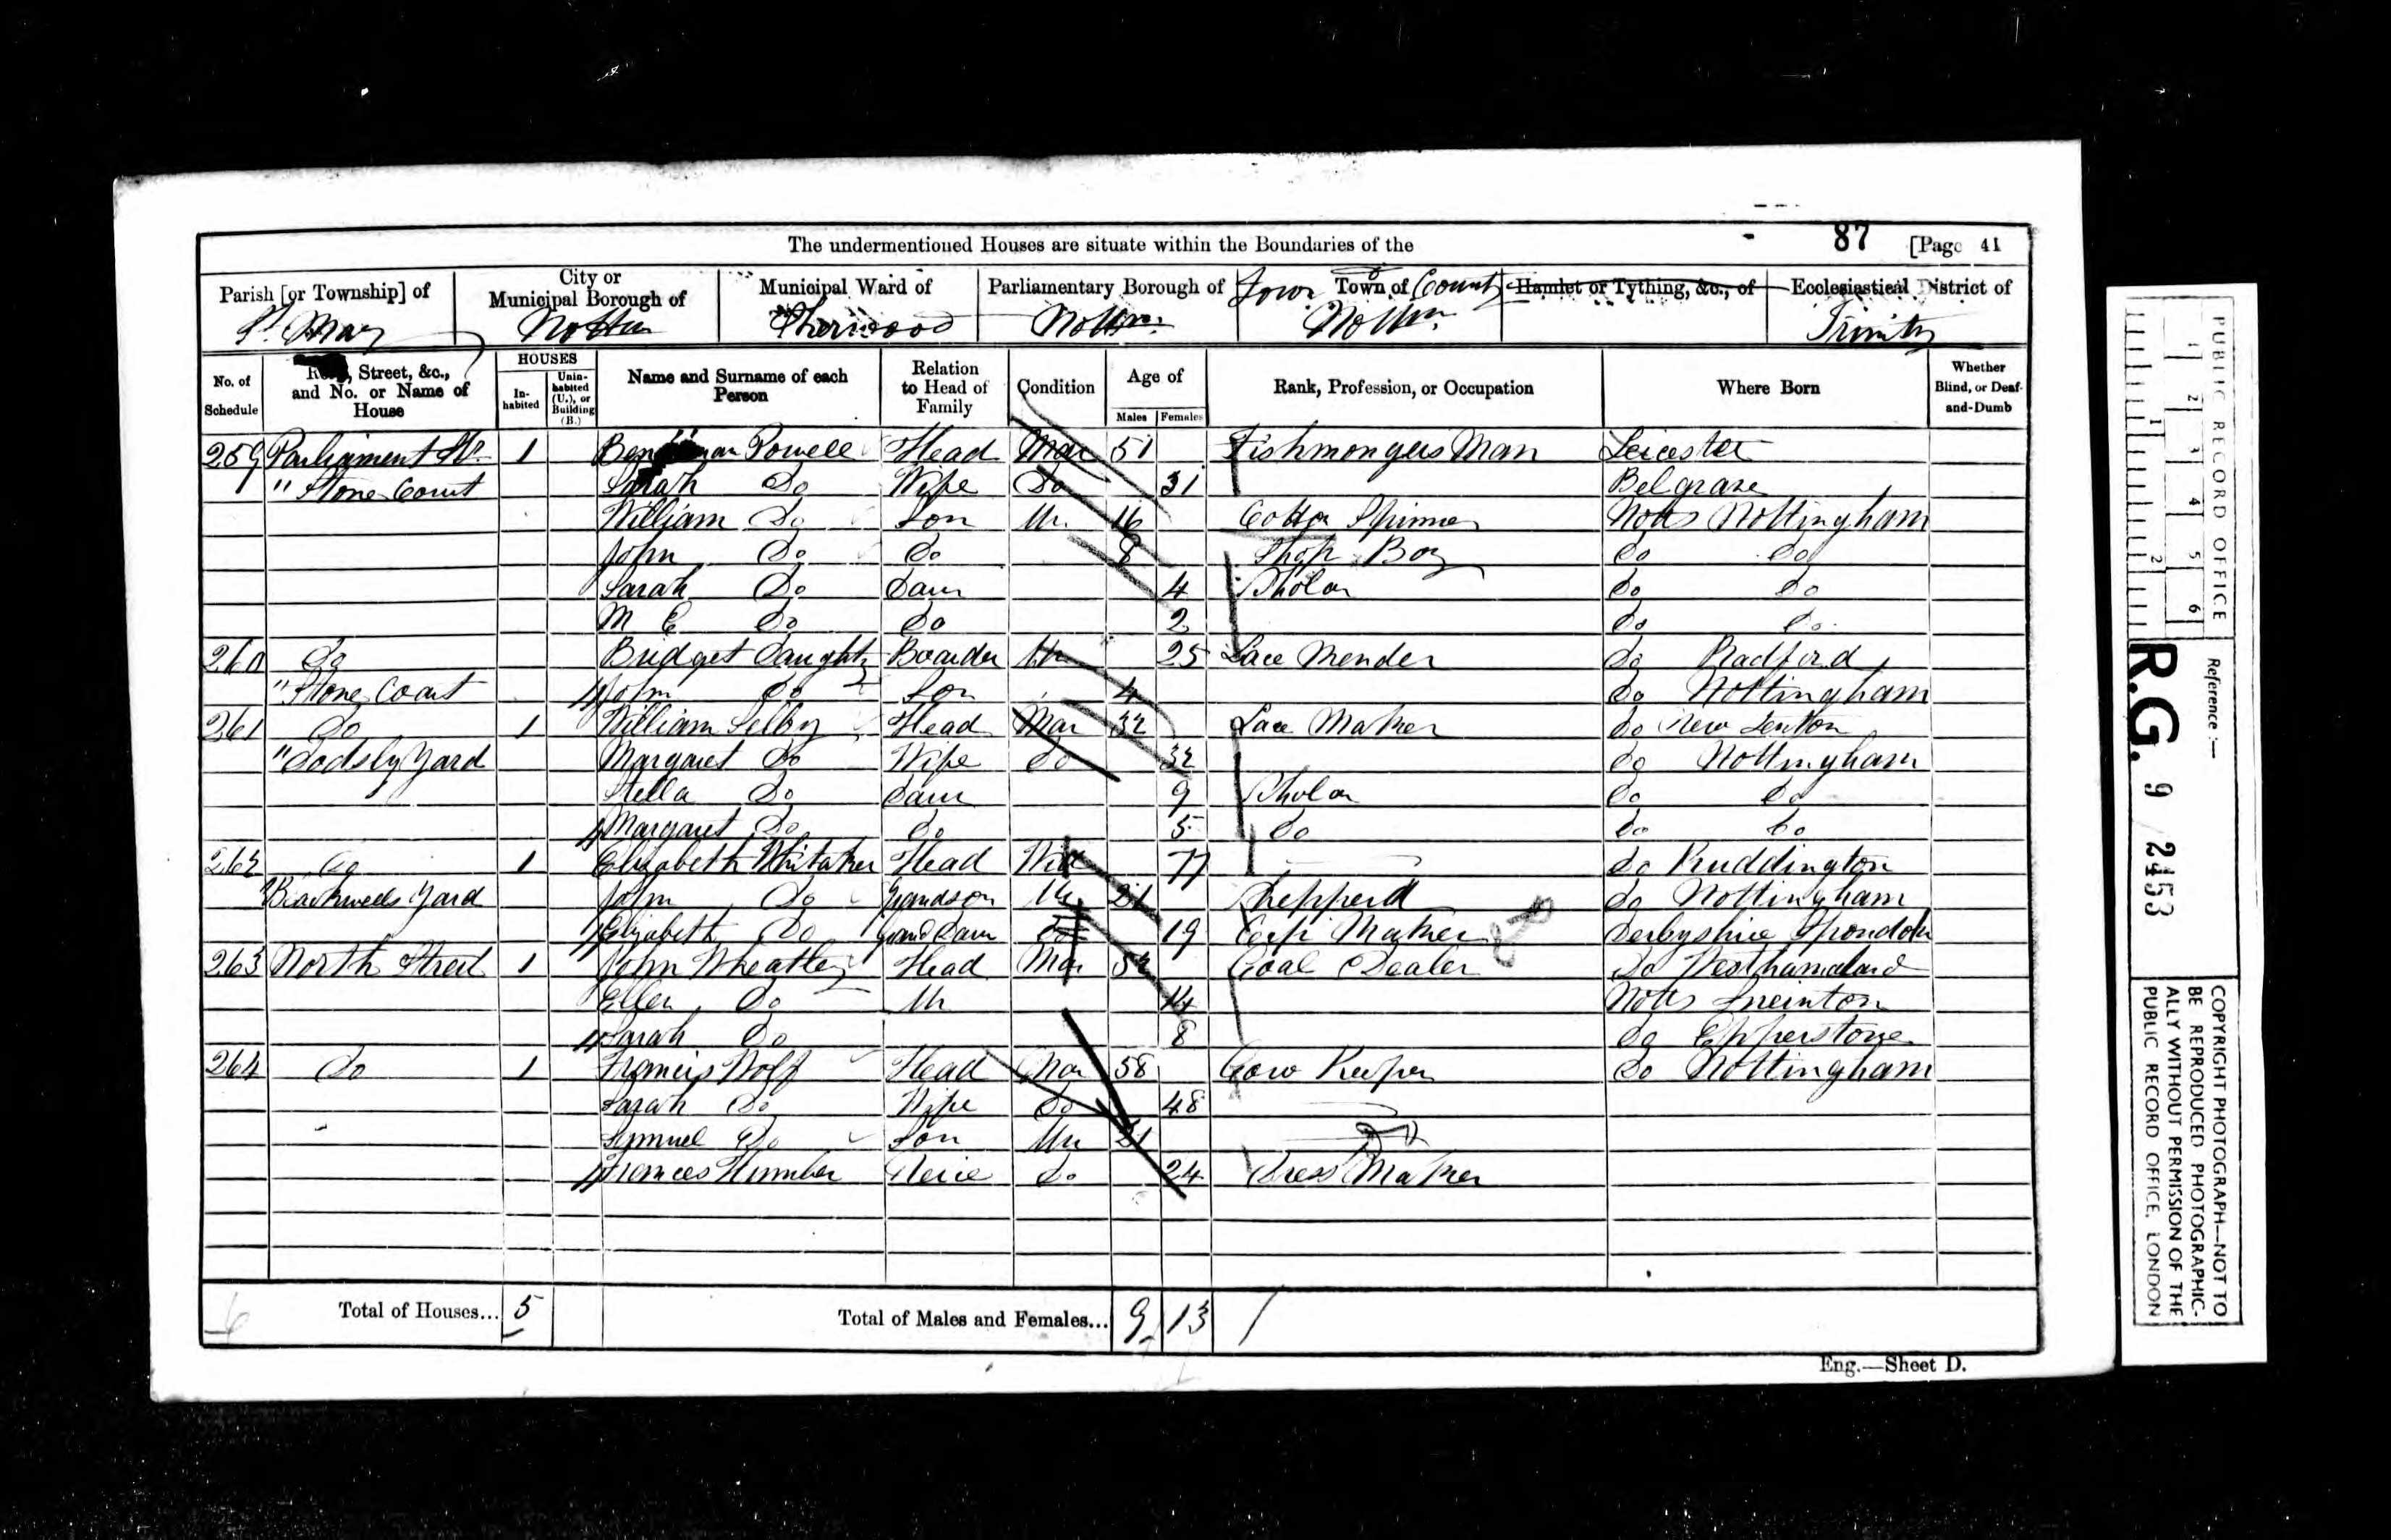 The undermentioned Houses are situate within the Boundaries of the
87 [Page 41
Parish [or Township] of City or Municipal Borough of Municipal Ward of Parliamentary Borough of Town of County Hamlet or Tything, &c., of Ecclesiastical District of
St Mary Nottm Sherwood Nottm Nottm Trinity
No. of Schedule Street, &c., and No. or Name of House HOUSES In-habited Unin-habited (U.), or Building (B.) Name and Surname of each Person Relation to Head of Family Condition Age of Males Females Rank, Profession, or Occupation Where Born Whether Blind, or Deaf-and-Dumb
259 Parliament St. 1 Powell Head Mar 51 Fishmongers Man Leicester
" Stone Court Sarah Do Wife Do 31 Belgrave
William Do Son Un. 16 Cotton Spinner Notts Nottingham
John Do Do 8 Shop Boy Do Do
Sarah Do Daur 4 Scholar Do Do
M E Do Do 2 Do Do
260 Do Bridget Boarder Un 25 Lace Mender Do Radford
" Stone Court John Do Son 4 Do Nottingham
261 Do 1 William Selby Head Mar 32 Lace Maker Do New Lenton
" Yard Margaret Do Wife Do 32 Do Nottingham
Stella Do Daur 9 Scholar Do Do
Margaret Do Do 5 Do Do Do
262 Do 1 Elizabeth Whitaker Head Wid 77 Do Ruddington
Yard John Do Grandson Un 21 Shepperd Do Nottingham
Elizabeth Do Grand Daur Do 19 Maker Derbyshire Spondon
263 North Street 1 John Wheatley Head Mar Coal Dealer Do
Ellen Do Un 14 Notts Sneinton
Sarah Do 8 Do Epperstone
264 Do 1 Francis Wolf Head Mar 58 Cow Keeper Do Nottingham
Sarah Do Wife Do 48
Samuel Do Son Un 21 Do
Frances Humber Neice Do 24 Dress Maker
Total of Houses... 5 Total of Males and Females... 9 13
Eng.—Sheet D.
PUBLIC RECORD OFFICE
1 2 3 4 5 6
1 2
Reference :—
R.G. 9 / 2453
COPYRIGHT PHOTOGRAPH—NOT TO
BE REPRODUCED PHOTOGRAPHIC-
ALLY WITHOUT PERMISSION OF THE
PUBLIC RECORD OFFICE, LONDON